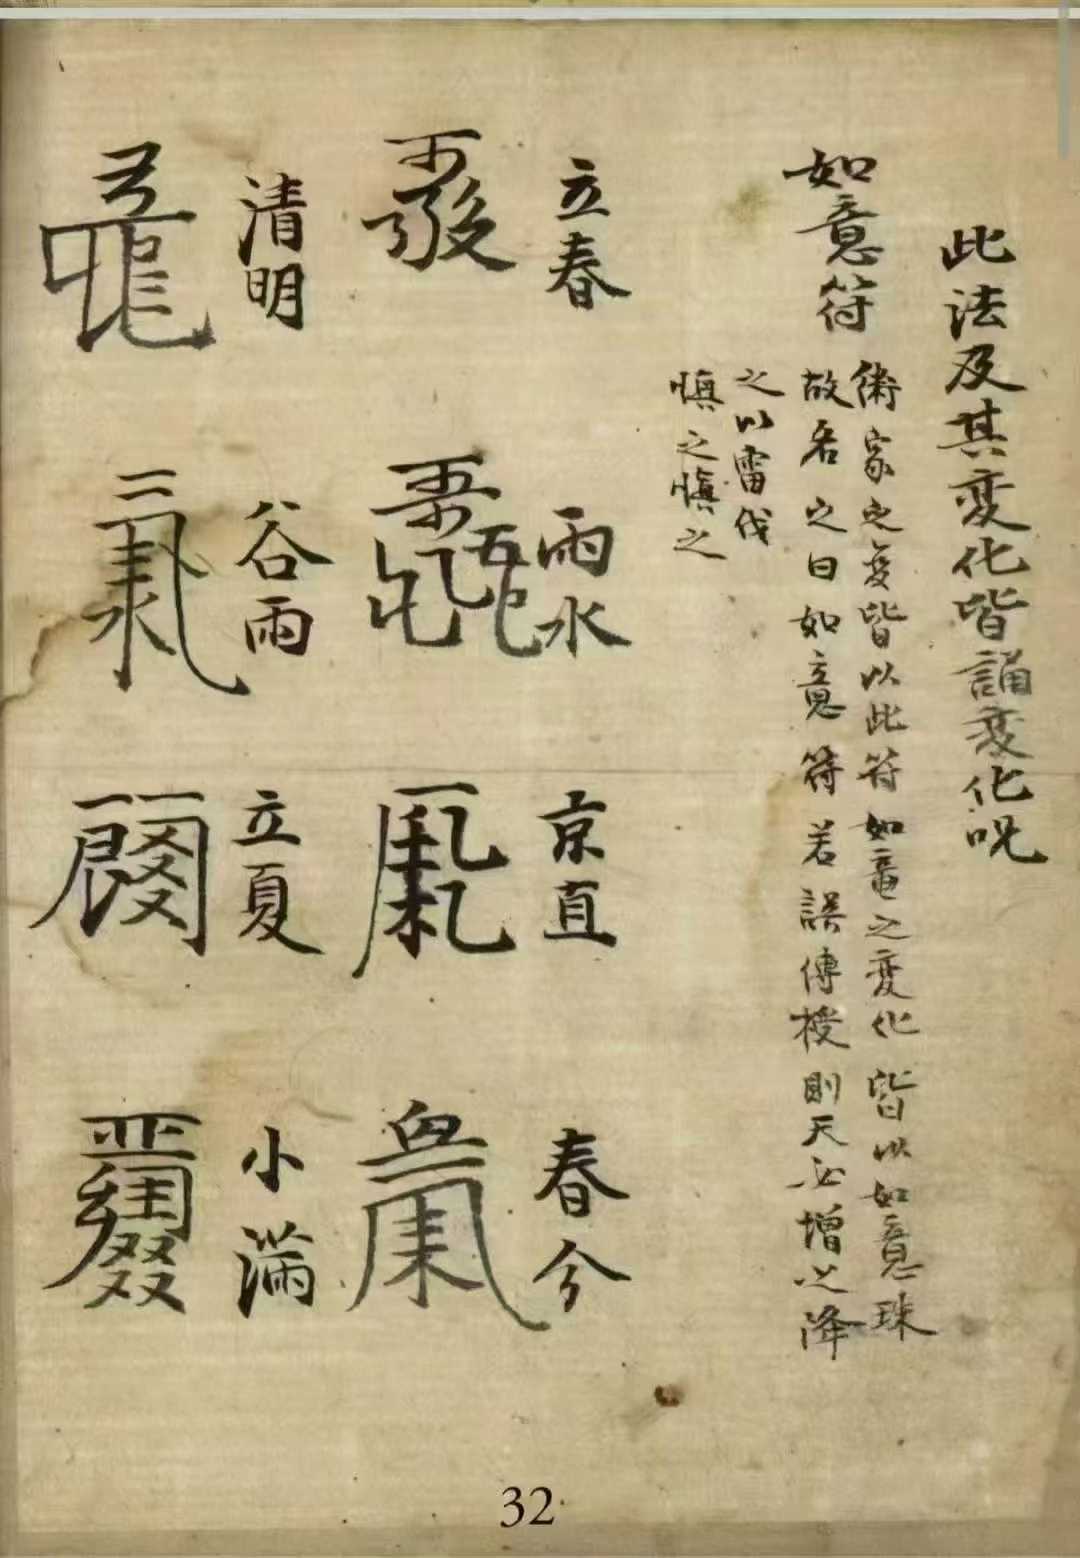 此法及其変化皆誦変化呪
如意符
術家之変皆以此符如竜之変化皆以如意珠
故名之曰如意符若誤傳授則天必增以降
之以雷伐
慎之慎之
立春
雨水
京直
春分
清明
谷雨
立夏
小滿
32